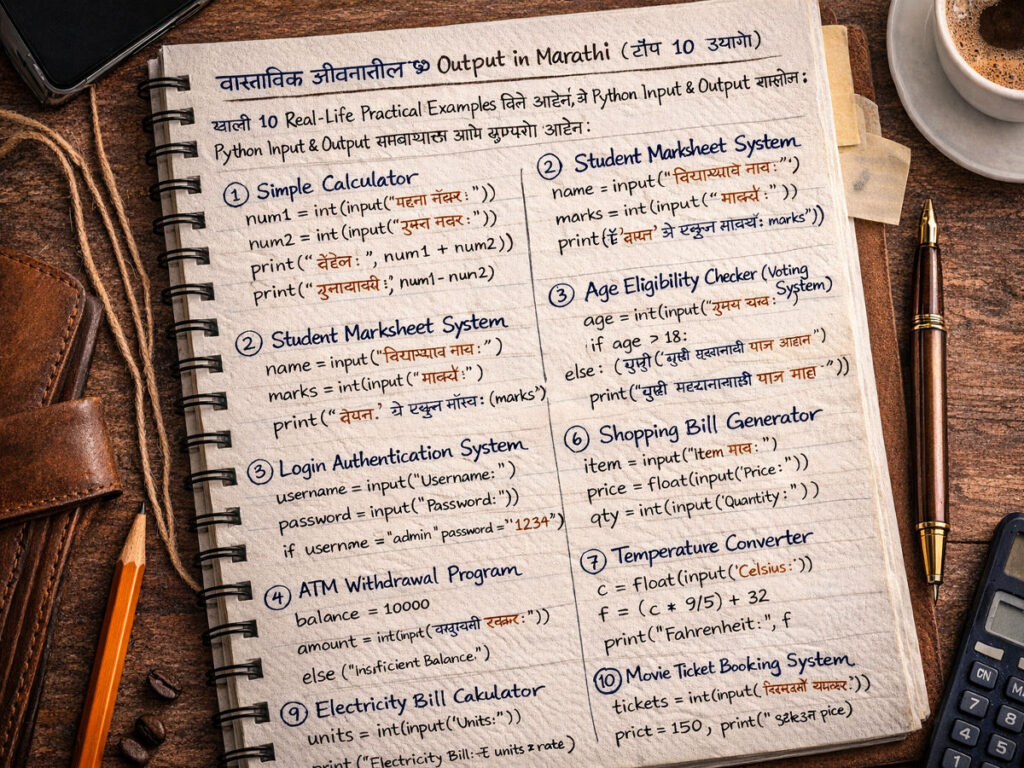 वास्ताविक जीवनातील Output in Marathi (टॉप 10 उयागे)
खाली 10 Real-Life Practical Examples विने आहेन, ये Python Input & Output
Python Input & Output आहेन:
① Simple Calculator
num1 = int(input("पहना नंबर:"))
num2 = int(input("दुमन नबर:"))
print(" बेहेल: ", num1 + num2))
print(" num1-nun2)
② Student Marksheet System
name = input("विद्याथ्याव नाव:")
marks = int(input("मार्क्ये:")
print(" वेयन.' ये एकुन मॉस्व: (marks')
③ Login Authentication System
username = input("Username:")
password = input("Password:"))
if username = "admin" password = "'1234")
④ ATM Withdrawal Program
balance = 10000
amount = int(inprt( रक्कर:"))
else ("Insificient Balance.")
⑨ Electricity Bill Cakulator
units = int(input('Units:"))
print ("Electricity Bill: units x rate)
② Student Marksheet System
name = input("विद्याथ्यावे नाव:"')
marks = int(input(" मार्क्ये:"))
print( 'वायन' ये एकुन मावर्य: marks"))
③ Age Eligibility Checker (Voting
System)
age = int(input("तुमय वय:
if age > 18:
else: ( पाज आहान")
print("युह्यी पाज माह "))
⑥ Shopping Bill Generator
item = input("Item माव:")
price = float(input('Price:"))
qty = int(input('Quantity:"))
⑦ Temperature Converter
c = float(input('Celsius:'))
f = (c * 9/5) + 32
print("Fahrenheit:", f
⑩ Movie Ticket Booking System
tickets = int(input(
prict = 150, print(" pice)
CN
7
8
4
5
1